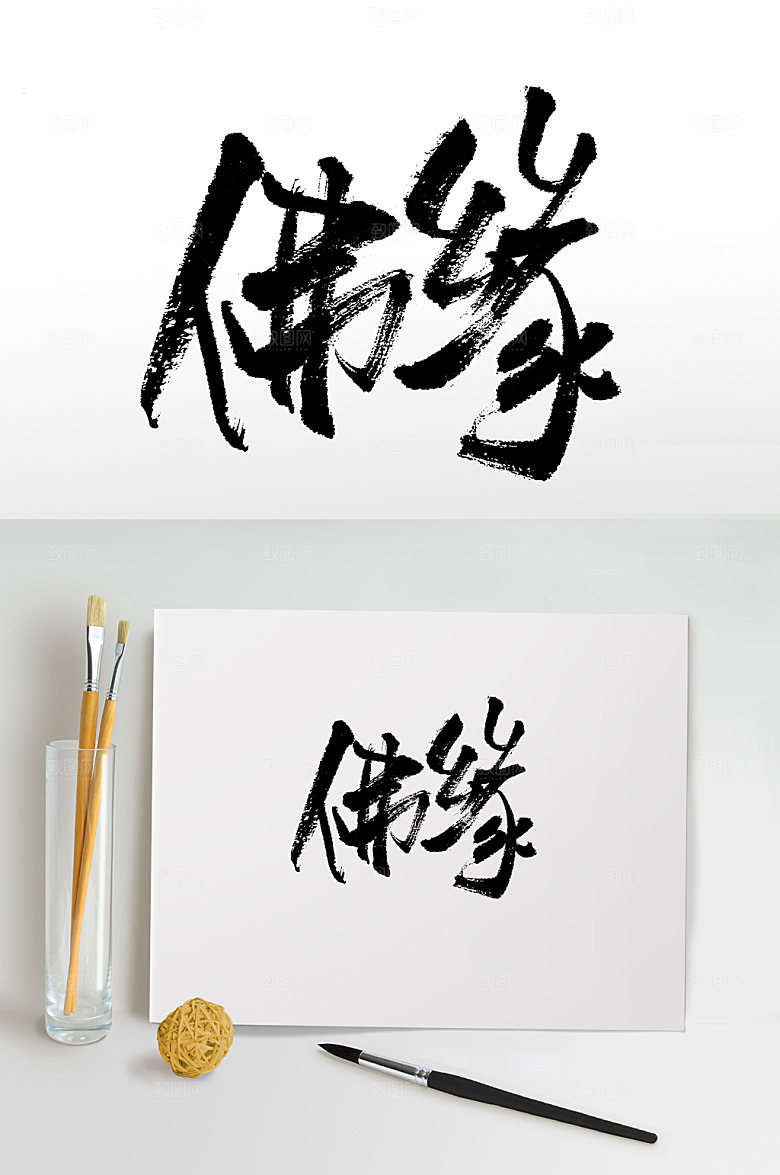 佛缘
佛缘